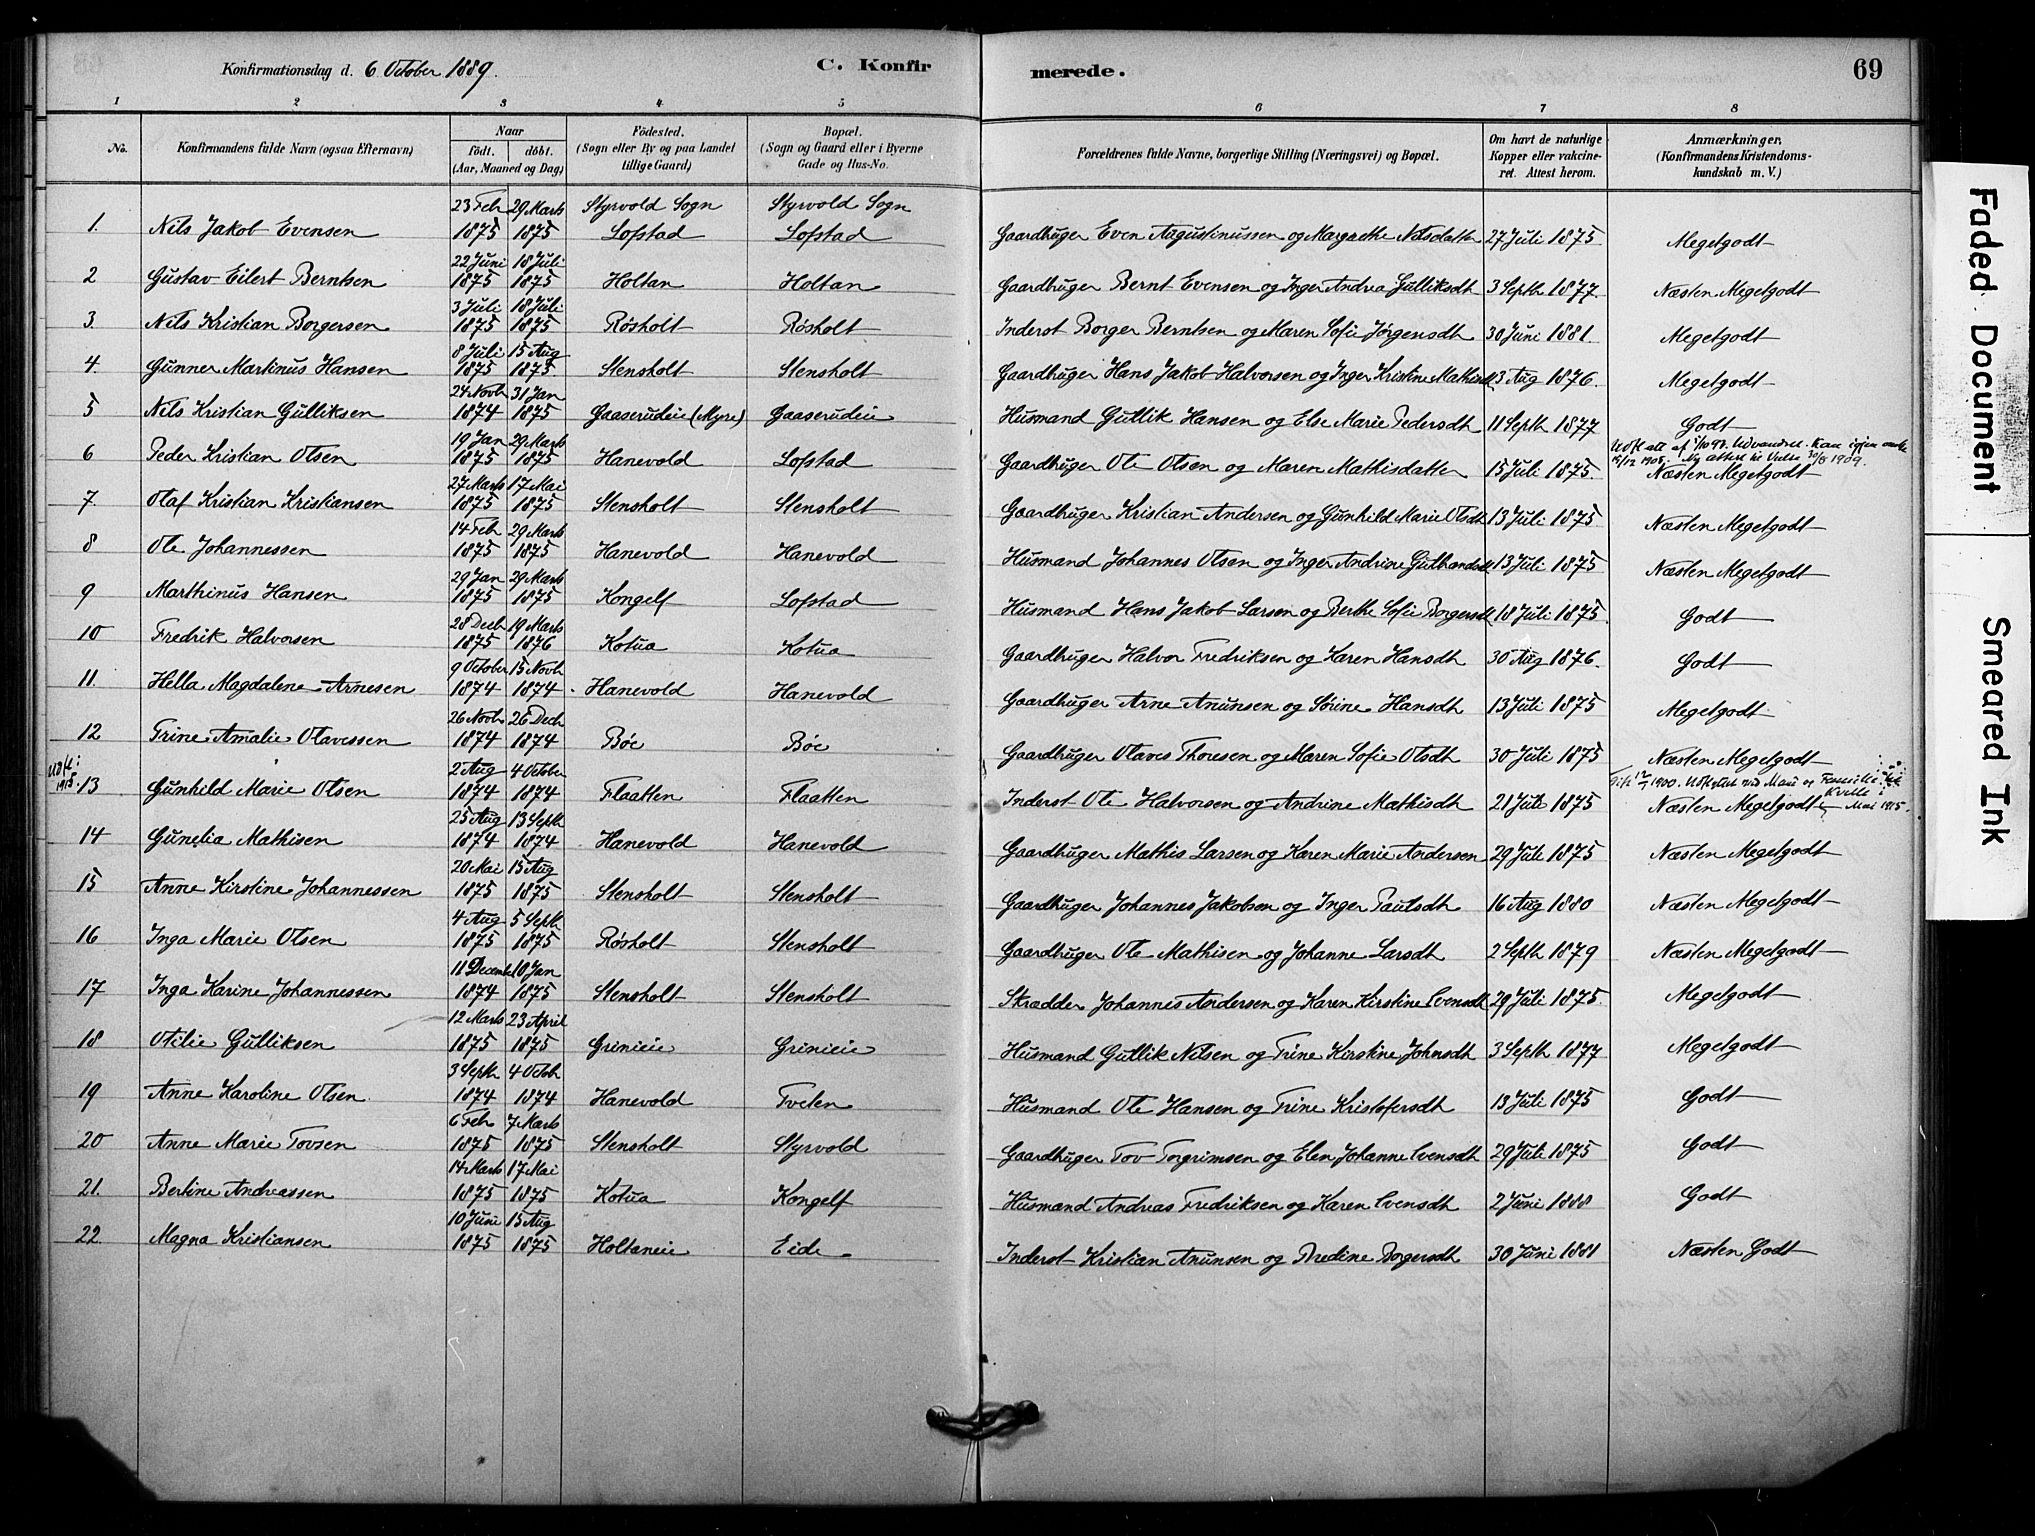 Konfirmationsdag d. 6 October 1889.
C. Konfirmerede.
69
1 2 3 4 5 6 7 8
No.
Konfirmandens fulde Navn (ogsaa Efternavn)
Naar
født. | døbt.
(Aar, Maaned og Dag)
Födested.
(Sogn eller By og paa Landet
tillige Gaard)
Bopæl.
(Sogn og Gaard eller i Byerne
Gade og Hus-No.
Forældrenes fulde Navne, borgerlige Stilling (Næringsvei) og Bopæl.
Om havt de naturlige
Kopper eller vakcine-
ret. Attest herom.
Anmærkninger,
(Konfirmandens Kristendoms-
kundskab m. V.)
1. Nils Jakob Evensen 23 Feb 1875 29 Marts 1875 Styrvold Sogn Lofstad Styrvold Sogn Lofstad Gaardbuger Even Augustinussen og Margrethe Nilsdatter 27 Juli 1875 Megetgodt
2 Gustav Eilert Berntsen 22 Juni 1875 18 Juli 1875 Holtan Holtan Gaardbuger Bernt Evensen og Inger Andrea Gulliksdt 3 Septb 1877 Næsten Megetgodt
3. Nils Kristian Borgersen 3 Juli 1875 18 Juli 1875 Røsholt Røsholt Inderst Borger Berntsen og Maren Sofie Jørgensdt 30 Juni 1881. Megetgodt
4. Gunner Martinus Hansen 8 Juli 1875 15 Aug 1875 Stensholt Stensholt Gaardbuger Hans Jakob Halvorsen og Inger Kristine Mathisdt 3 Aug 1876. Megetgodt
5 Nils Kristian Gulliksen 24 Novb 1874 31 Jan 1875 Gaaserudeie (Myre) Gaaserudeie Husmand Gullik Hansen og Else Marie Pedersdt 11 Septb 1877 Godt
6 Peder Kristian Olsen 19 Jan 1875 29 Marts 1875 Hanevold Lofstad Gaardbuger Ole Olsen og Maren Mathisdatter 15 Juli 1875. Udvandret. 1909. Næsten Megetgodt
7. Olaf Kristian Kristiansen 27 Marts 1875 17 Mai 1875 Stensholt Stensholt Gaardbuger Kristian Andersen og Gunhild Marie Olsdt 13 Juli 1875 Næsten Megetgodt
8 Ole Johannessen 14 Feb 1875 29 Marts 1875 Hanevold Hanevold Husmand Johannes Olsen og Inger Andrine 13 Juli 1875 Næsten Megetgodt
9 Marthinus Hansen 29 Jan 1875 29 Marts 1875 Kongelf Lofstad Husmand Hans Jakob Larsen og Berthe Sofie Borgersdt 18 Juli 1875. Godt
10 Fredrik Halvorsen 28 Decb 1875 19 Marts 1876 Kotua Kotua Gaardbuger Halvor Fredriksen og Karen Hansdt 30 Aug 1876. Godt
11. Hella Magdalene Arnesen 9 October 1874 15 Novb 1874 Hanevold Hanevold Gaardbuger Arne Anunsen og Sørine Hansdt 13 Juli 1875 Megetgodt
12 Trine Amalie Olavessen 26 Novb 1874 26 Decb 1874 Bøe Bøe Gaardbuger Olaves Thoresen og Maren Sofie Olsdt 30 Juli 1875 Næsten Megetgodt
Udfl: 1915. 13 Gunhild Marie Olsen 2 Aug 1874 4 October 1874 Flaatten Flaatten Inderst Ole Halvorsen og Andrine Mathisdt 21 Juli 1875 1900. Udflyttet Familie Mai 1915. Næsten Megetgodt
14 Gunelia Mathisen 25 Aug 1874 13 Septb 1874 Hanevold Hanevold Gaardbuger Mathis Larsen og Karen Marie Andersen 29 Juli 1875 Næsten Megetgodt
15 Anne Kirstine Johannessen 20 Mai 1875 15 Aug 1875 Stensholt Stensholt Gaardbuger Johannes Jakobsen og Inger Paulsdt 16 Aug 1880 Næsten Megetgodt
16 Inga Marie Olsen 4 Aug 1875 5 Septb 1875 Røsholt Stensholt Gaardbuger Ole Mathisen og Johanne Larsdt 2 Septb 1879 Næsten Megetgodt
17 Inga Karine Johannessen 11 Decemb 1874 10 Jan 1875 Stensholt Stensholt Skrædder Johannes Andersen og Karen Kirstine Evensdt 29 Juli 1875. Megetgodt
18 Otilie Gulliksen 12 Marts 1875 23 April 1875 Grinieie Grinieie Husmand Gullik Nilsen og Trine Kirstine Johnsdt 3 Septb 1877 Megetgodt
19 Anne Karoline Olsen 3 Septb 1874 4 Octob 1874 Hanevold Tveten Husmand Ole Hansen og Trine Kristofersdt 13 Juli 1875 Godt
20 Anne Marie Tovsen 6 Feb 1875 7 Marts 1875 Stensholt Styrvold Gaardbuger Tov Torgrimsen og Elen Johanne Evensdt 29 Juli 1875 Godt
21. Bertine Andreassen 14 Marts 1875 17 Mai 1875 Kotua Kongelf Husmand Andreas Fredriksen og Karen Evensdt 2 Juni 1888 Godt
22. Magna Kristiansen 10 Juni 1875 15 Aug 1875 Holtaneie Eide Inderst Kristian Anunsen og Bredine Borgersdt 30 Juni 1881 Næsten Godt
Faded Document
Smeared Ink